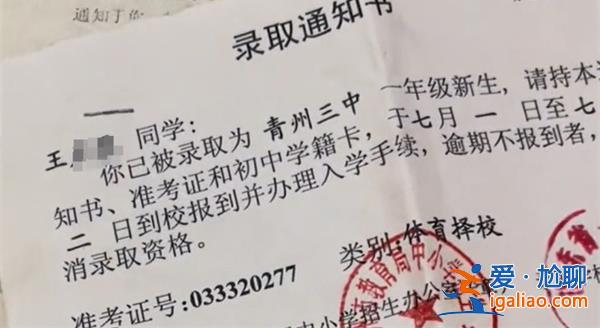 通知于你
录取通知书
王 同学:
你已被录取为 青州三中 一年级新生,请持本通
知书、准考证和初中学籍卡,于七月一日至七
二 日到校报到并办理入学手续,逾期不报到者,
消录取资格。
类别:体育择校
准考证号:033320277
教育局中小
中小学招生办公室
爱·尬聊
igaliao.com